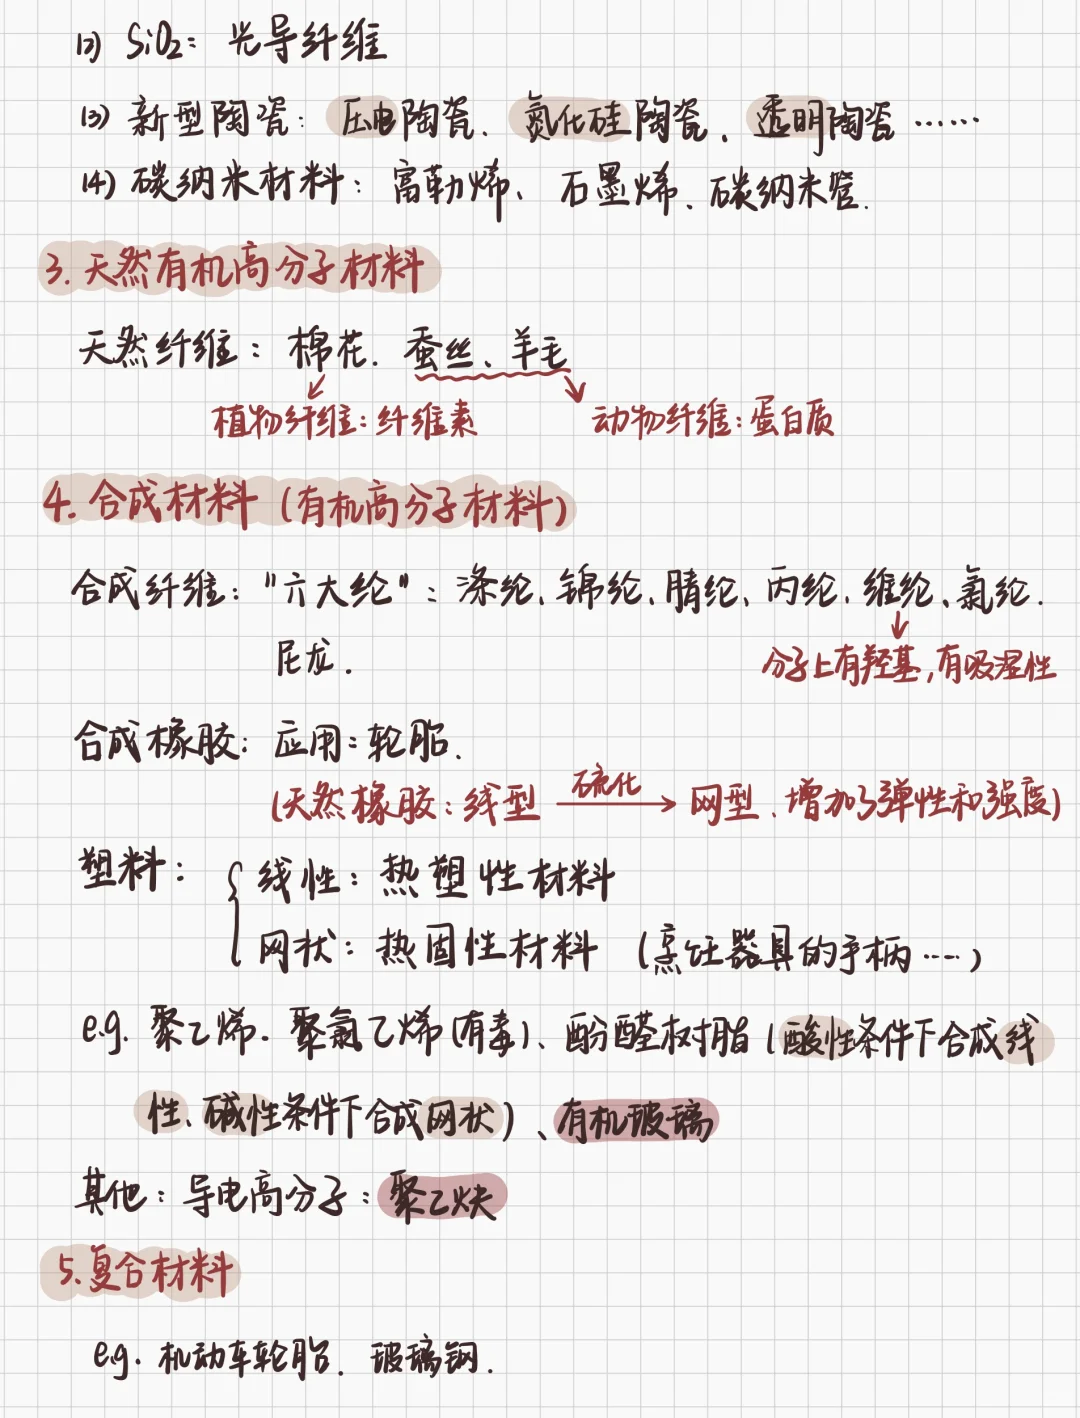 12) SiO₂: 光导纤维
13) 新型陶瓷: 压电陶瓷、氮化硅陶瓷、透明陶瓷 ……
14) 碳纳米材料: 富勒烯、石墨烯、碳纳米管.
3. 天然有机高分子材料
天然纤维: 棉花. 蚕丝、羊毛
植物纤维: 纤维素 动物纤维: 蛋白质
4. 合成材料 (有机高分子材料)
合成纤维: "六大纶": 涤纶、锦纶、腈纶、丙纶、维纶、氯纶.
尼龙. 分子上有羟基, 有吸湿性
合成橡胶: 应用: 轮胎.
硫化
(天然橡胶: 线型 → 网型、增加了弹性和强度)
塑料: { 线性: 热塑性材料
网状: 热固性材料 (烹饪器具的手柄 ····)
e.g. 聚乙烯. 聚氯乙烯 (有毒)、酚醛树脂 (酸性条件下合成线
性、碱性条件下合成网状)、有机玻璃
其他: 导电高分子: 聚乙炔
5. 复合材料
e.g. 机动车轮胎. 玻璃钢.